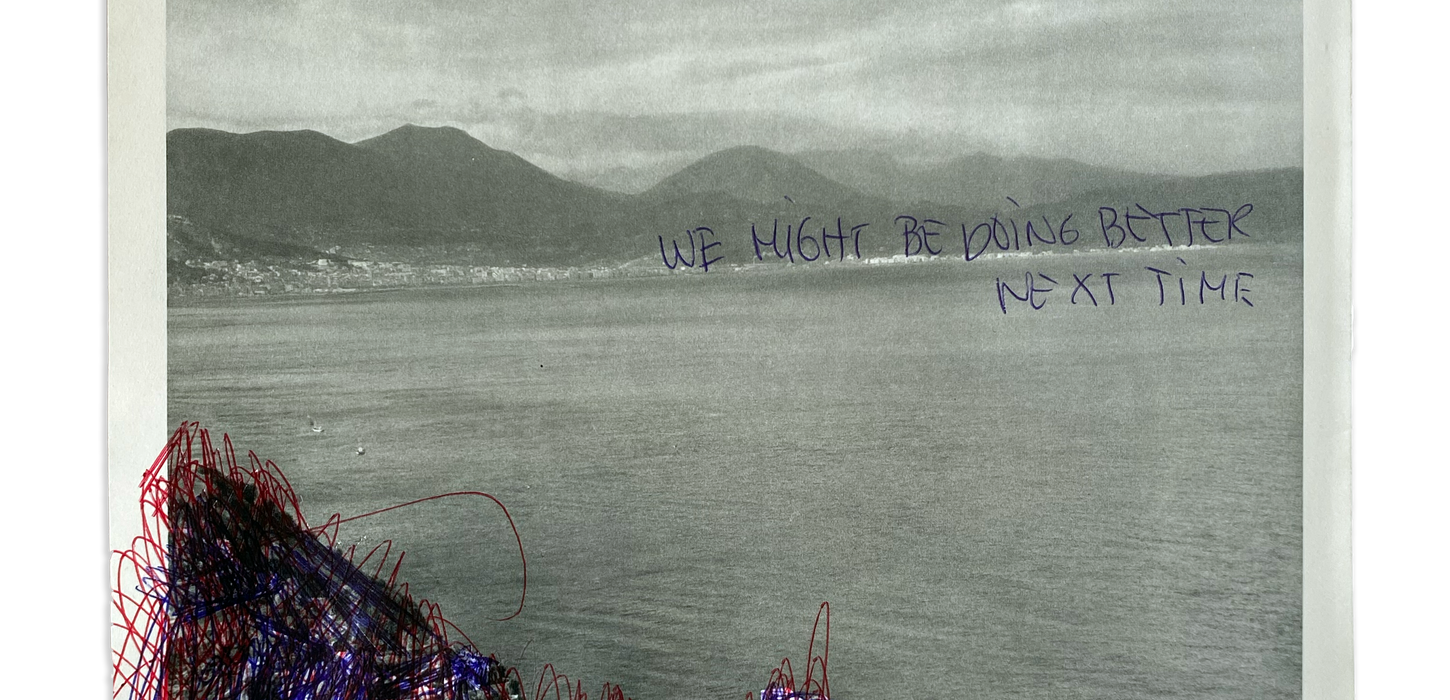 WE MIGHT BE DOING BETTER
NEXT TIME